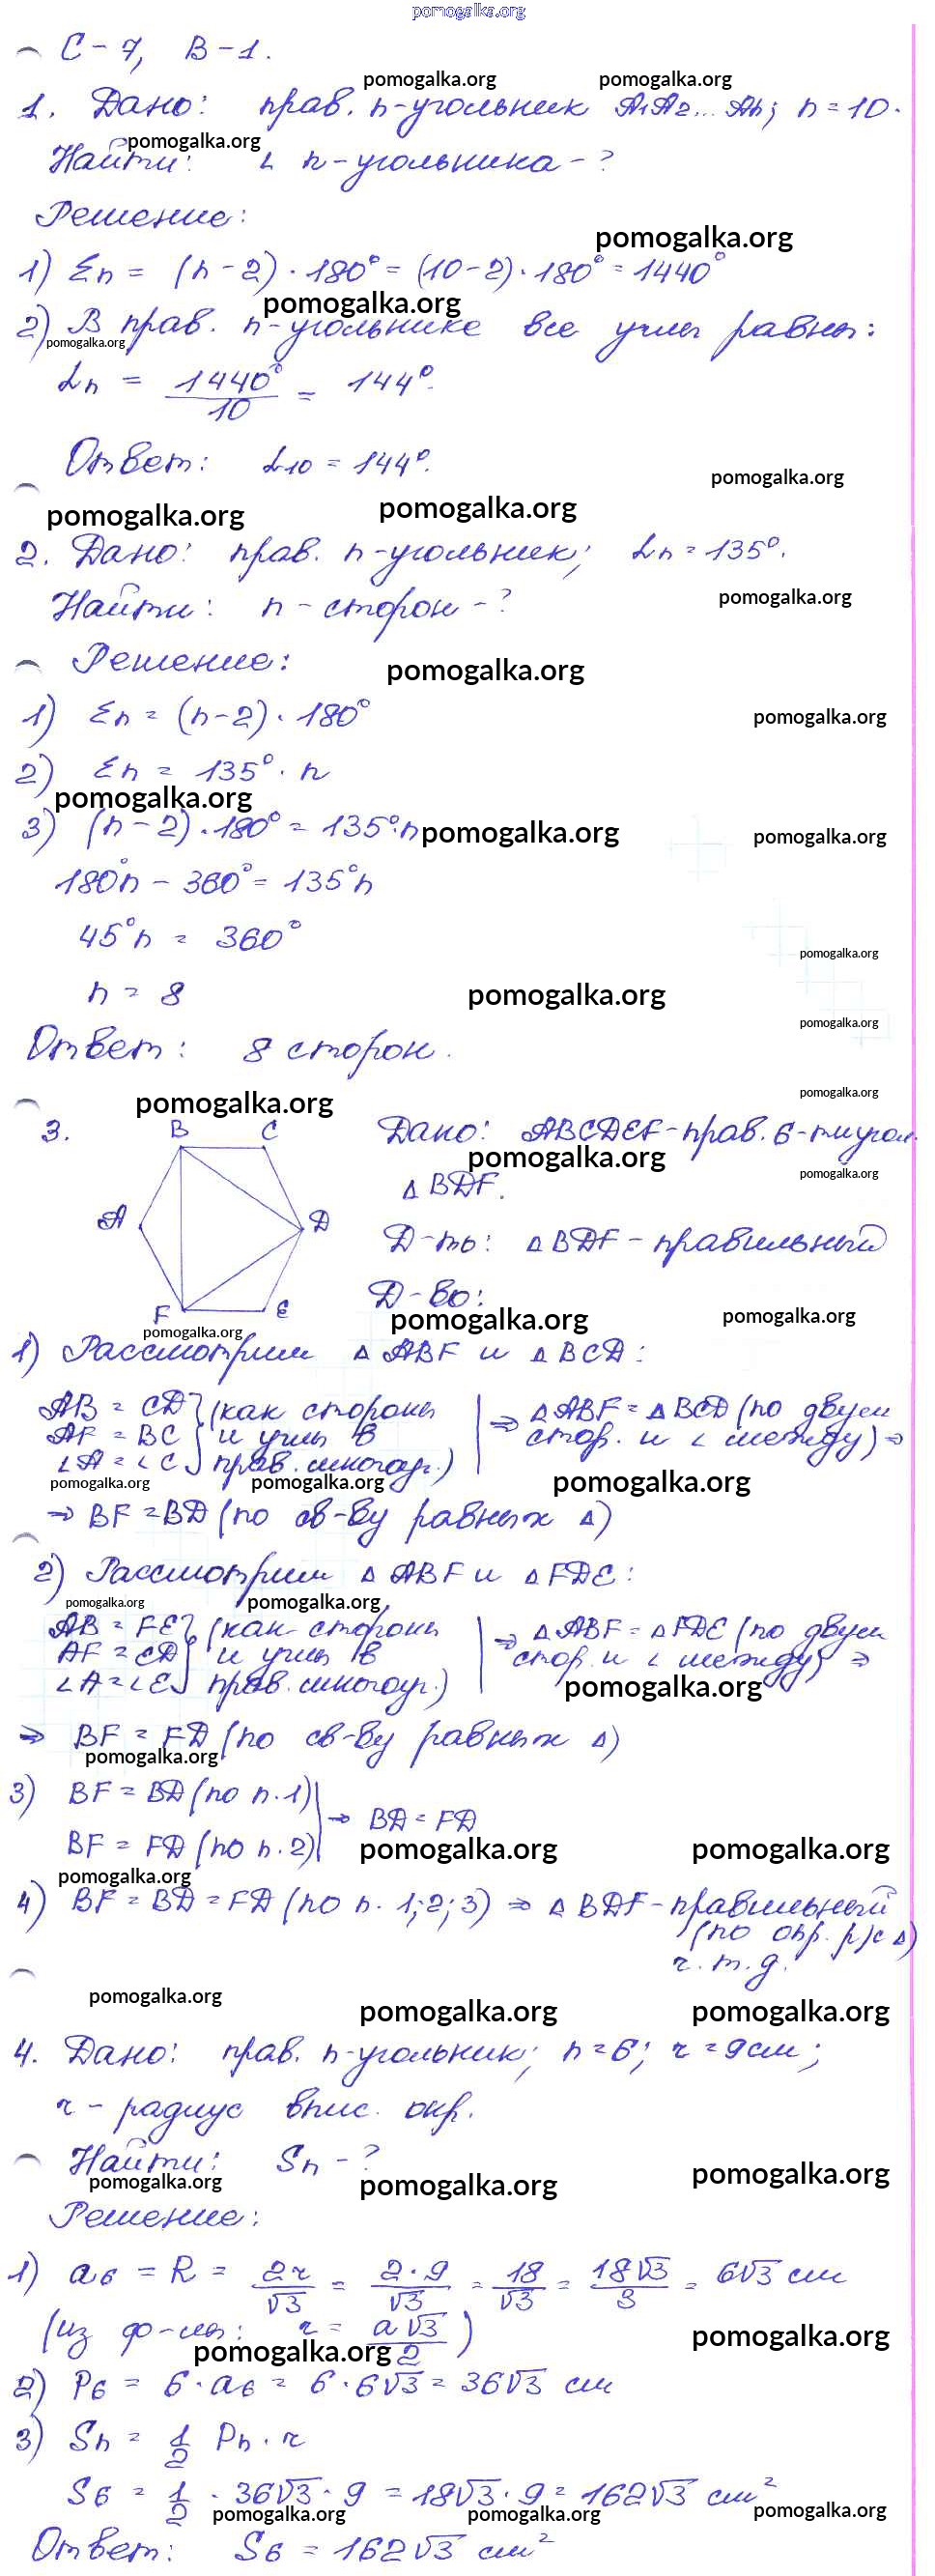 pomogalka.org
С-7, В-1.
pomogalka.org pomogalka.org
1. Дано: прав. n-угольник A1A2...An; n=10.
pomogalka.org
Найти: ∠ n-угольника-?
Решение:
pomogalka.org
1) Σn = (n-2)·180° = (10-2)·180° = 1440°
pomogalka.org
2) В прав. n-угольнике все углы равны:
pomogalka.org
∠n = 1440°/10 = 144°.
Ответ: ∠10 = 144°.
pomogalka.org
pomogalka.org pomogalka.org
2. Дано: прав. n-угольник; ∠n = 135°.
Найти: n-сторон-?
pomogalka.org
Решение:
pomogalka.org
1) Σn = (n-2)·180°
pomogalka.org
2) Σn = 135°·n
pomogalka.org
3) (n-2)·180° = 135°·n
pomogalka.org pomogalka.org
180°n - 360° = 135°n
45°n = 360°
pomogalka.org
n = 8
pomogalka.org
pomogalka.org
Ответ: 8 сторон.
pomogalka.org
pomogalka.org
3.
B C
A D
F E
Дано: ABCDEF-прав. 6-тиугол.
pomogalka.org
pomogalka.org
△BDF.
Д-ть: △BDF-правильный
Д-во:
pomogalka.org pomogalka.org
pomogalka.org
1) Рассмотрим △ABF и △BCD:
AB = CD } (как стороны | ⇒ △ABF = △BCD (по двум
AF = BC } и углы в стор. и ∠ между) ⇒
∠A = ∠C } прав. многоуг.)
pomogalka.org pomogalka.org pomogalka.org
⇒ BF = BD (по св-ву равных △)
2) Рассмотрим △ABF и △FDE:
pomogalka.org pomogalka.org
AB = FE } (как стороны | ⇒ △ABF = △FDE (по двум
AF = CD } и углы в стор. и ∠ между) ⇒
∠A = ∠E } прав. многоуг.)
pomogalka.org
⇒ BF = FD (по св-ву равных △)
pomogalka.org
3) BF = BD (по п. 1) | ⇒ BD = FD
BF = FD (по п. 2)
pomogalka.org pomogalka.org
pomogalka.org
4) BF = BD = FD (по п. 1; 2; 3) ⇒ △BDF-правильный
(по опр. р/с △)
ч.т.д.
pomogalka.org
pomogalka.org pomogalka.org
4. Дано: прав. n-угольник; n=6; r = 9см;
r - радиус впис. окр.
Найти: Sn - ?
pomogalka.org pomogalka.org pomogalka.org
Решение:
1) a6 = R = 2r/√3 = 2·9/√3 = 18/√3 = 18√3/3 = 6√3 см
(из ф-лы: r = a√3/2)
pomogalka.org pomogalka.org
2) P6 = 6·a6 = 6·6√3 = 36√3 см
3) Sn = 1/2 Pn·r
S6 = 1/2 · 36√3 · 9 = 18√3 · 9 = 162√3 см²
pomogalka.org pomogalka.org pomogalka.org
Ответ: S6 = 162√3 см²